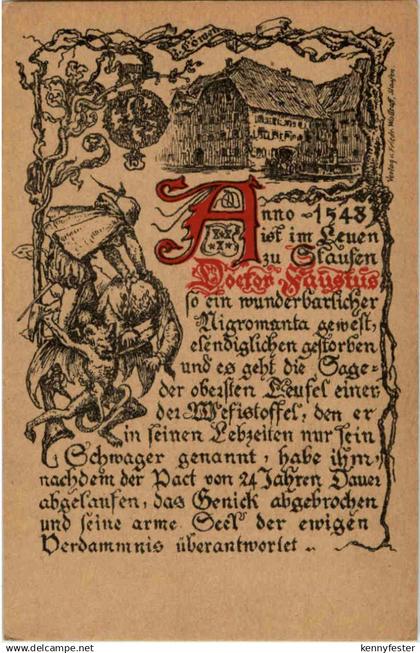 z. Löwen
Anno 1548
ist im Leuen
zu Staufen
Doctor Faustus
so ein wunderbarlicher
Nigromanta gewest,
elendiglichen gestorben
und es geht die Sage
der obersten Teufel einer,
der Mefistoffel, den er
in seinen Lebzeiten nur sein
Schwager genannt, habe ihm,
nachdem der Pact von 24 Jahren Dauer
abgelaufen, das Genick abgebrochen
und seine arme Seel der ewigen
Verdammnis überantwortet
delcampe.net
kennyfester